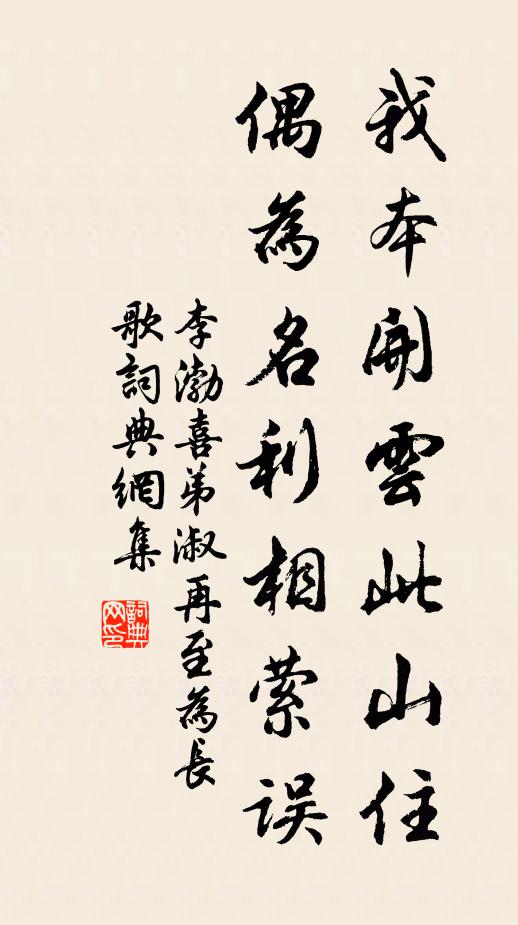 我本開雲此山住
偶為名利相縈误
李渤喜弟淑再至為長
歌詞典網集
詞典
网印